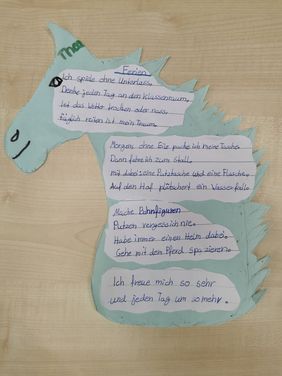 Thea
Ferien
Ich spiele ohne Unterlass,
Denke jeden Tag an den Klassenraum,
Ist das Wetter trocken oder nass,
Täglich reiten ist mein Traum.
Morgens ohne Eile packe ich meine Tasche
Dann fahre ich zum Stall,
mit dabei: eine Putztasche und eine Flasche.
Auf den Hof plätschert ein Wasserfall.
Mache Bahnfiguren
Putzen vergess ich nie.
Habe immer einen Helm dabei.
Gehe mit den Pferd spazieren.
Ich freue mich so sehr
und jeden Tag um so mehr.